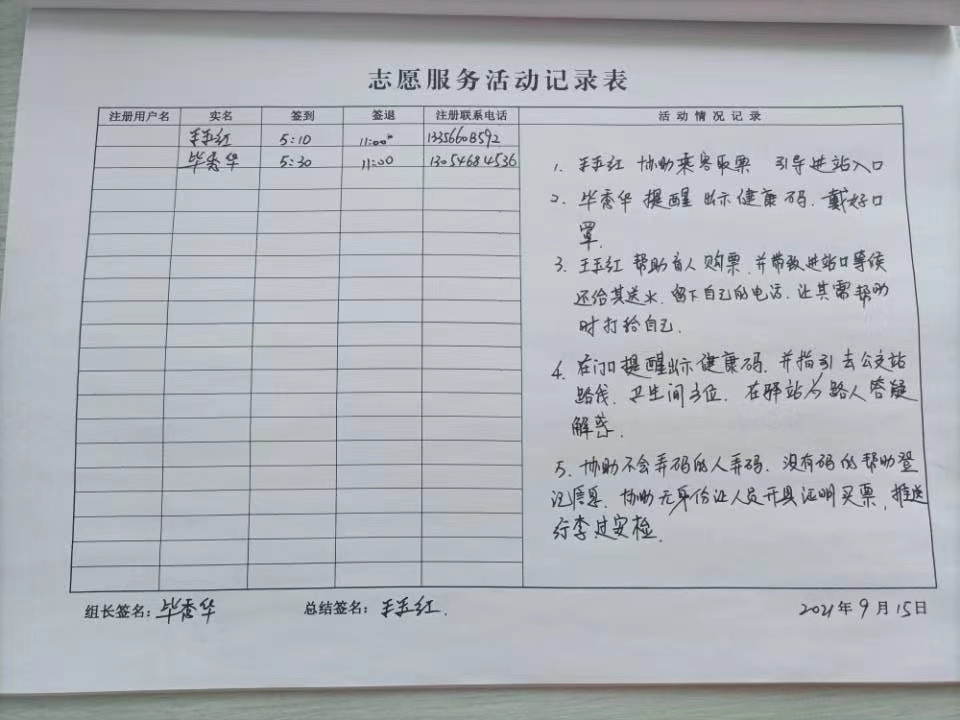 志愿服务活动记录表
注册用户名 实名 签到 签退 注册联系电话 活动情况记录
王玉红 5:10 11:00 13356608592
毕秀华 5:30 11:00 13054684536
1. 王玉红 协助乘客取票 引导进站入口
2. 毕秀华 提醒 出示健康码. 戴好口
罩.
3. 王玉红 帮助盲人购票. 并带到进站口等候
还给其送水. 留下自己的电话. 让其需帮助
时打给自己.
4. 在门口提醒出示健康码. 并指引去公交站
路线. 卫生间方位. 在驿站为路人答疑
解惑.
5. 协助不会弄码的人弄码. 没有码的帮助登
记信息. 协助无身份证人员开具证明买票, 推送
行李过安检.
组长签名: 毕秀华 总结签名: 王玉红.
2021年9月15日